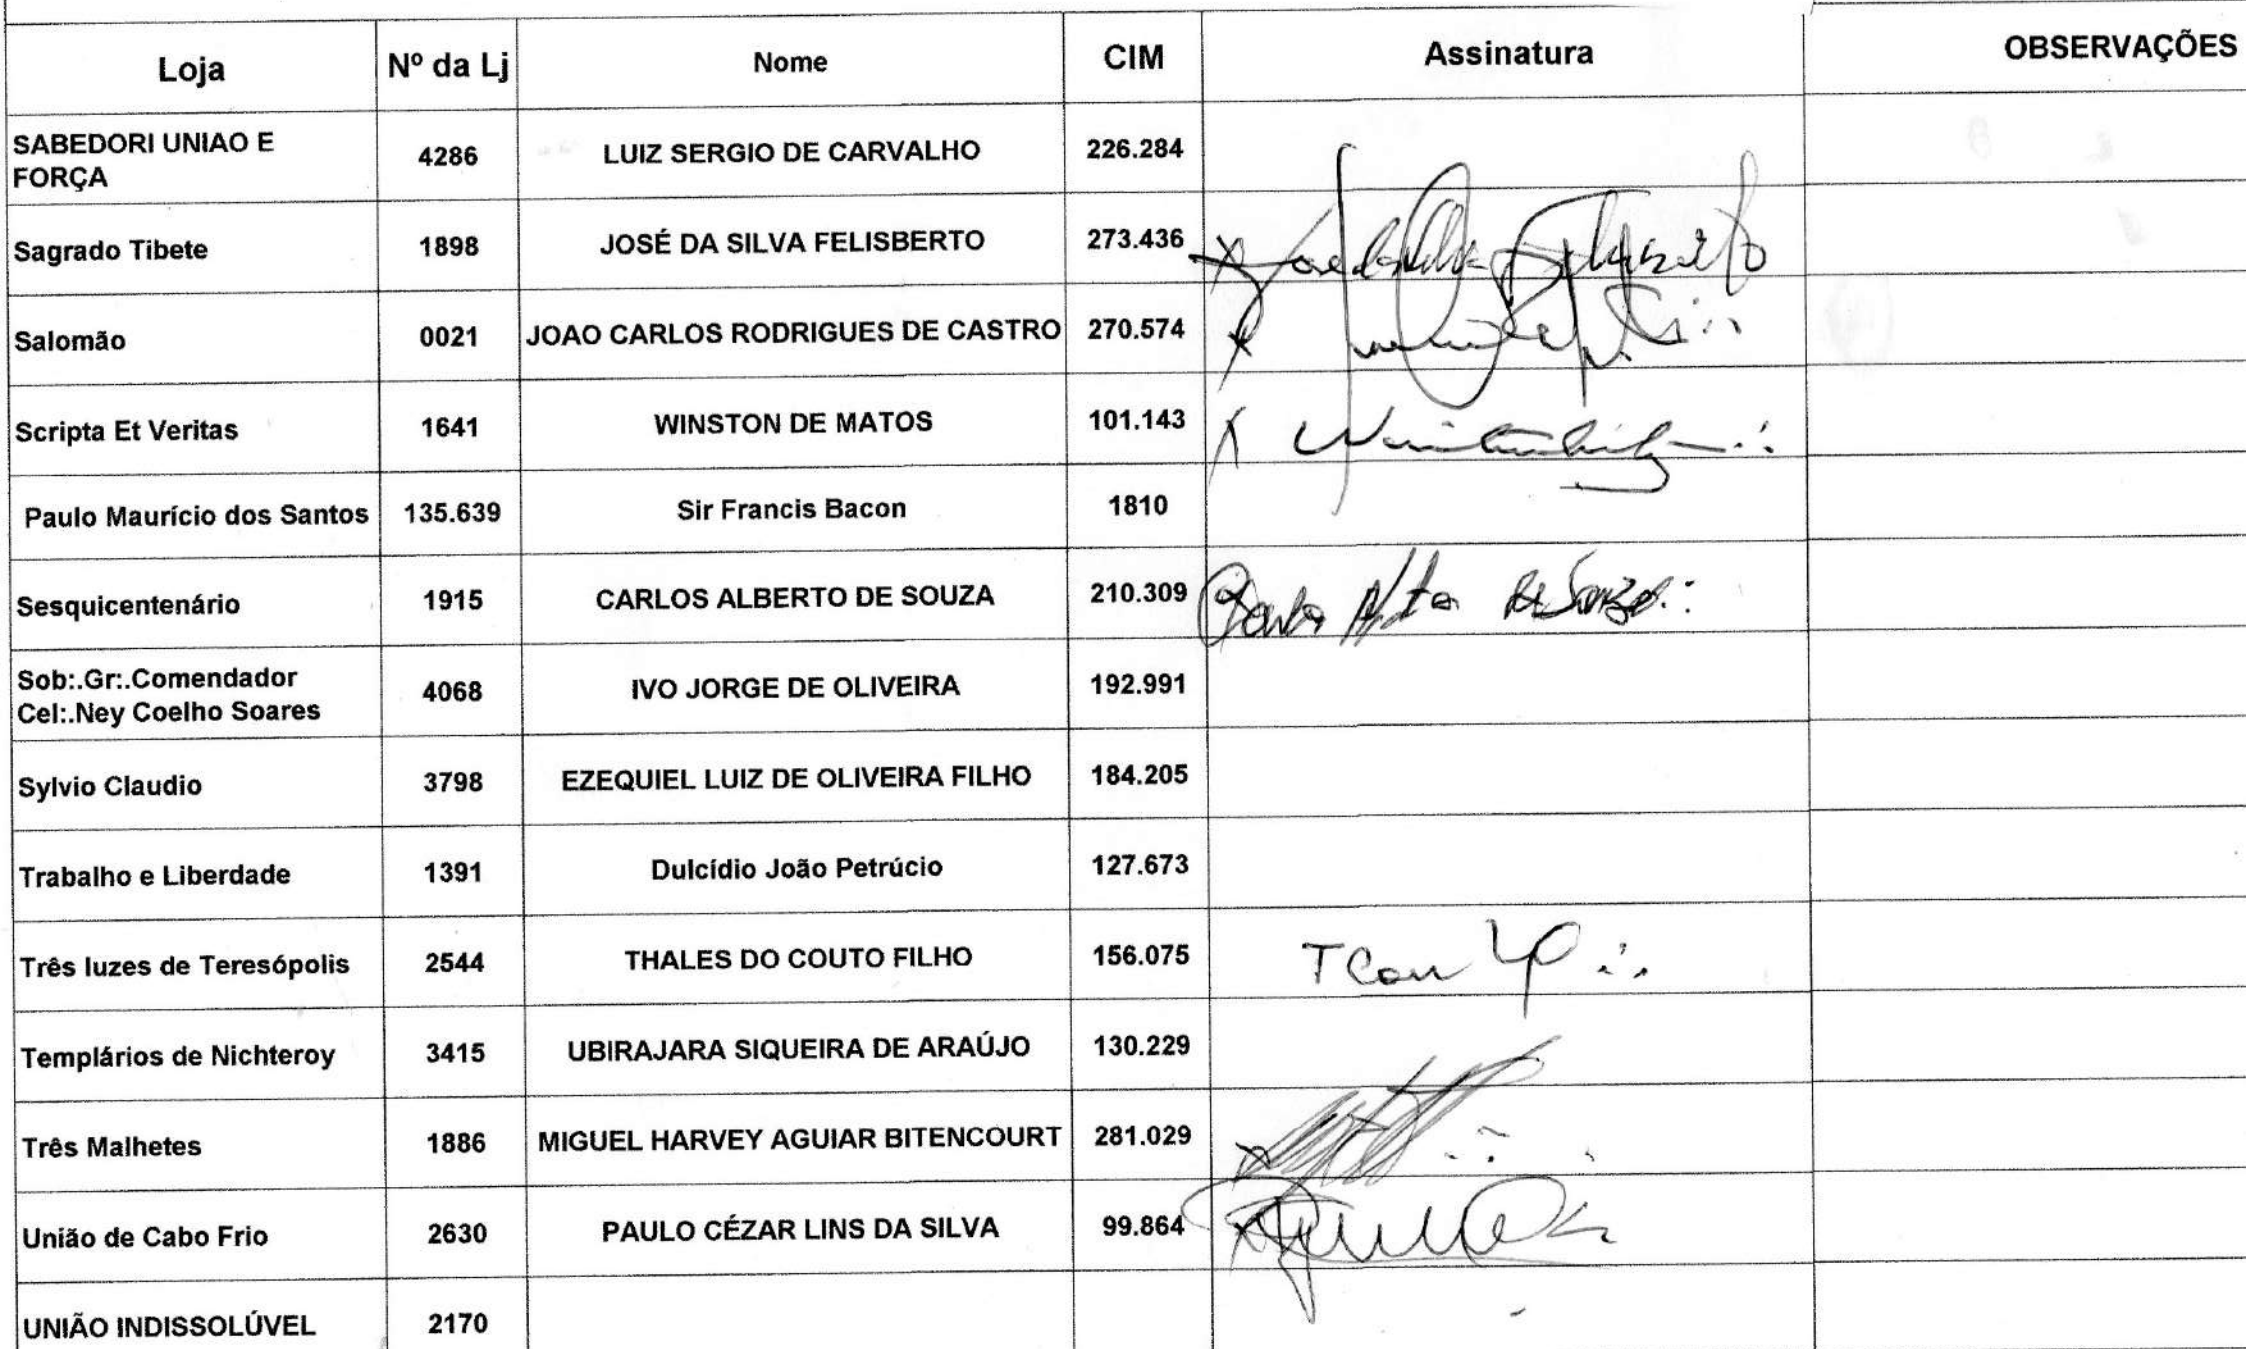 Loja Nº da Lj Nome CIM Assinatura OBSERVAÇÕES
SABEDORI UNIAO E
FORÇA 4286 LUIZ SERGIO DE CARVALHO 226.284
Sagrado Tibete 1898 JOSÉ DA SILVA FELISBERTO 273.436
Salomão 0021 JOAO CARLOS RODRIGUES DE CASTRO 270.574
Scripta Et Veritas 1641 WINSTON DE MATOS 101.143
Paulo Maurício dos Santos 135.639 Sir Francis Bacon 1810
Sesquicentenário 1915 CARLOS ALBERTO DE SOUZA 210.309
Sob:.Gr:.Comendador
Cel:.Ney Coelho Soares 4068 IVO JORGE DE OLIVEIRA 192.991
Sylvio Claudio 3798 EZEQUIEL LUIZ DE OLIVEIRA FILHO 184.205
Trabalho e Liberdade 1391 Dulcídio João Petrúcio 127.673
Três luzes de Teresópolis 2544 THALES DO COUTO FILHO 156.075
Templários de Nichteroy 3415 UBIRAJARA SIQUEIRA DE ARAÚJO 130.229
Três Malhetes 1886 MIGUEL HARVEY AGUIAR BITENCOURT 281.029
União de Cabo Frio 2630 PAULO CÉZAR LINS DA SILVA 99.864
UNIÃO INDISSOLÚVEL 2170